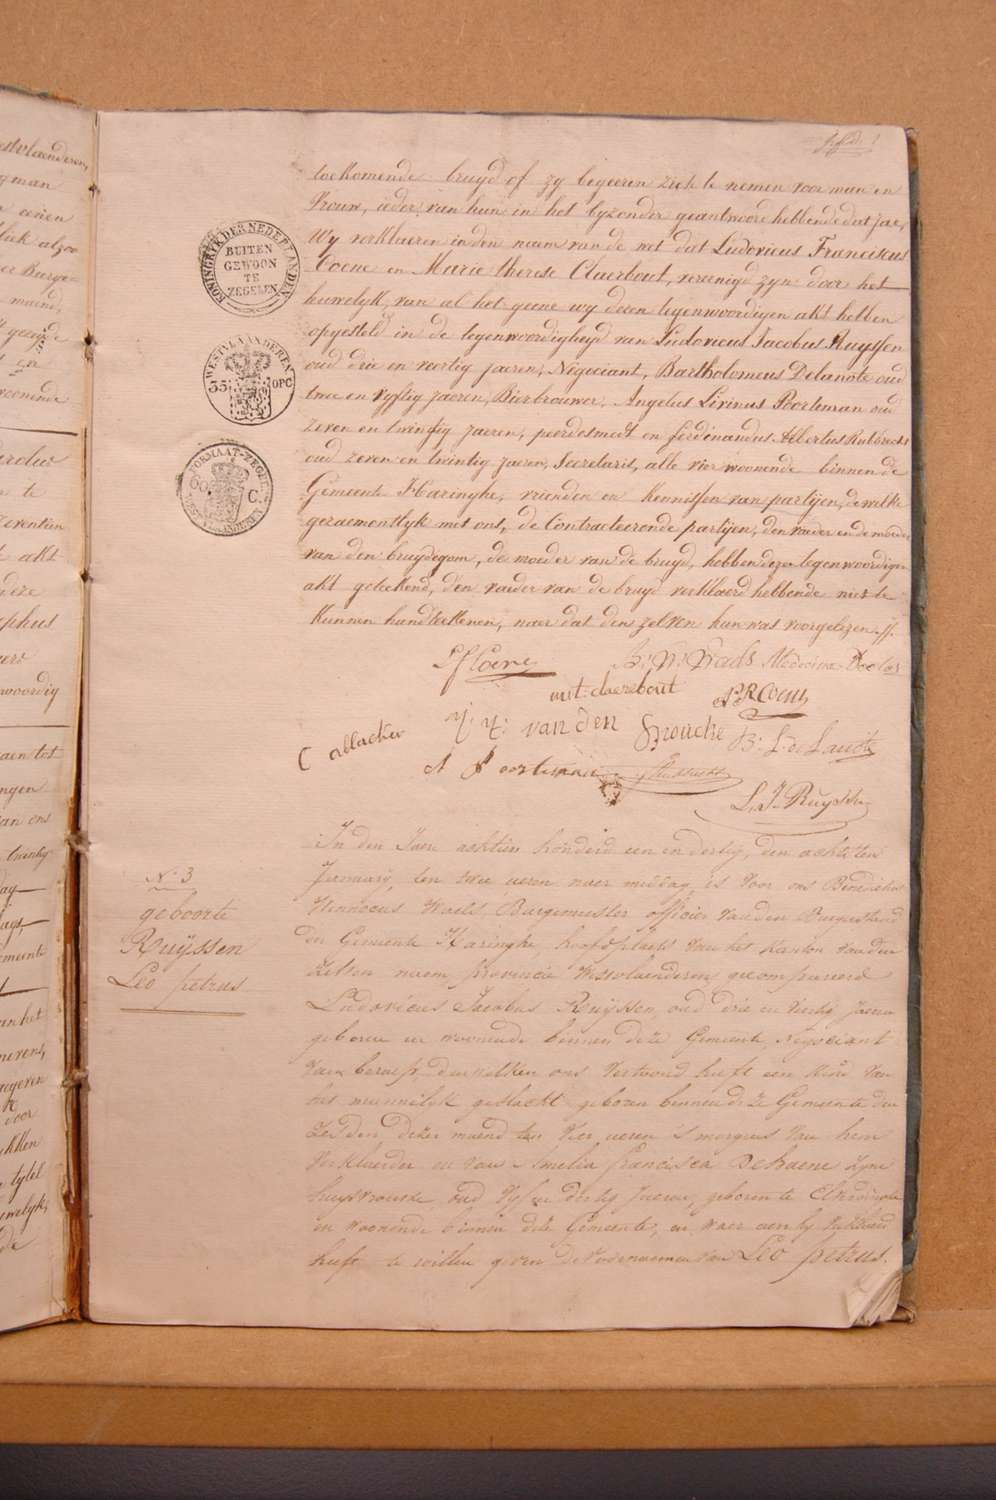 toekomende bruyd of zy begeeren zich te nemen voor man en
Vrouw, ieder van hun in het byzonder geantwoord hebbende dat jae,
Wy verklaeren in den naem van de wet dat Ludovicus Franciscus
Coene en Marie therese Claerbout, vereenigd zyn door het
huwelyk, van al het geene wy dezen tegenwoordigen akt hebben
opgesteld in de tegenwoordigheyd van Ludovicus Jacobus Ruyssen
oud drie en veertig jaeren, Negociant, Bartholomeus Delanote oud
twee en vyftig jaeren, Bierbrouwer, Angelus Livinus Poorteman oud
zeven en twintig jaeren, peerdesmedt en ferdinandus Albertus Rubbrecht
oud zeven en twintig jaeren, Secretaris, alle vier woonende binnen de
Gemeente Haringhe, vrienden en kennissen van partijen, de welke
gezaementlyk met ons, de Contracteerende partijen, den vaeder en de moeder
van den bruydegom, de moeder van de bruyd, hebben dezen tegenwoordigen
akt geteekend, den vaeder van de bruyd verklaerd hebbende niet te
kunnen handteekenen, naer dat den zelven hun was voorgelezen.
KONINGRYK DER NEDERLANDEN
BUITEN
GEWOON
TE
ZEGELEN
WESTVLAANDEREN
35 OPC
FORMAAT-ZEGEL
60 C.
LF Coene
B: W: Waels Medecinae Doctor
mt: claerebout
PR Coene
C allacker
van den Broucke
B: L: De Lanote
A Poorteman
Rubbrecht
L. J. Ruyssen
N.º 3
geboorte
Ruÿssen
Leo petrus
In den Jaere achtien honderd een en dertig, den achtsten
January, ten twee ueren naer middag, is voor ons Benedictus
Winnocus Waels, Burgemeester officier van den Burgerstand
der Gemeente Haringhe, hoofdplaets van het Kanton van den
zelven naem, provincie Westvlaenderen, gecompareerd
Ludovicus Jacobus Ruÿssen, oud drie en Veertig Jaeren
geboren en woonende binnen deze Gemeente, Negociant
van beroep, den welken ons Vertoond heeft een kind van
het mannelyk geslacht geboren binnen deze Gemeente den
zesden dezer maend ten Vier ueren 's morgens van hem
Verklaerder en van Amelia francisca Dehaene zyne
huysvrouwe, oud Vyf en dertig Jaeren, geboren te Elverdinghe
en woonende binnen deze Gemeente, en waer aen hy verklaerd
heeft te willen geven de Voornaemen van Leo petrus.